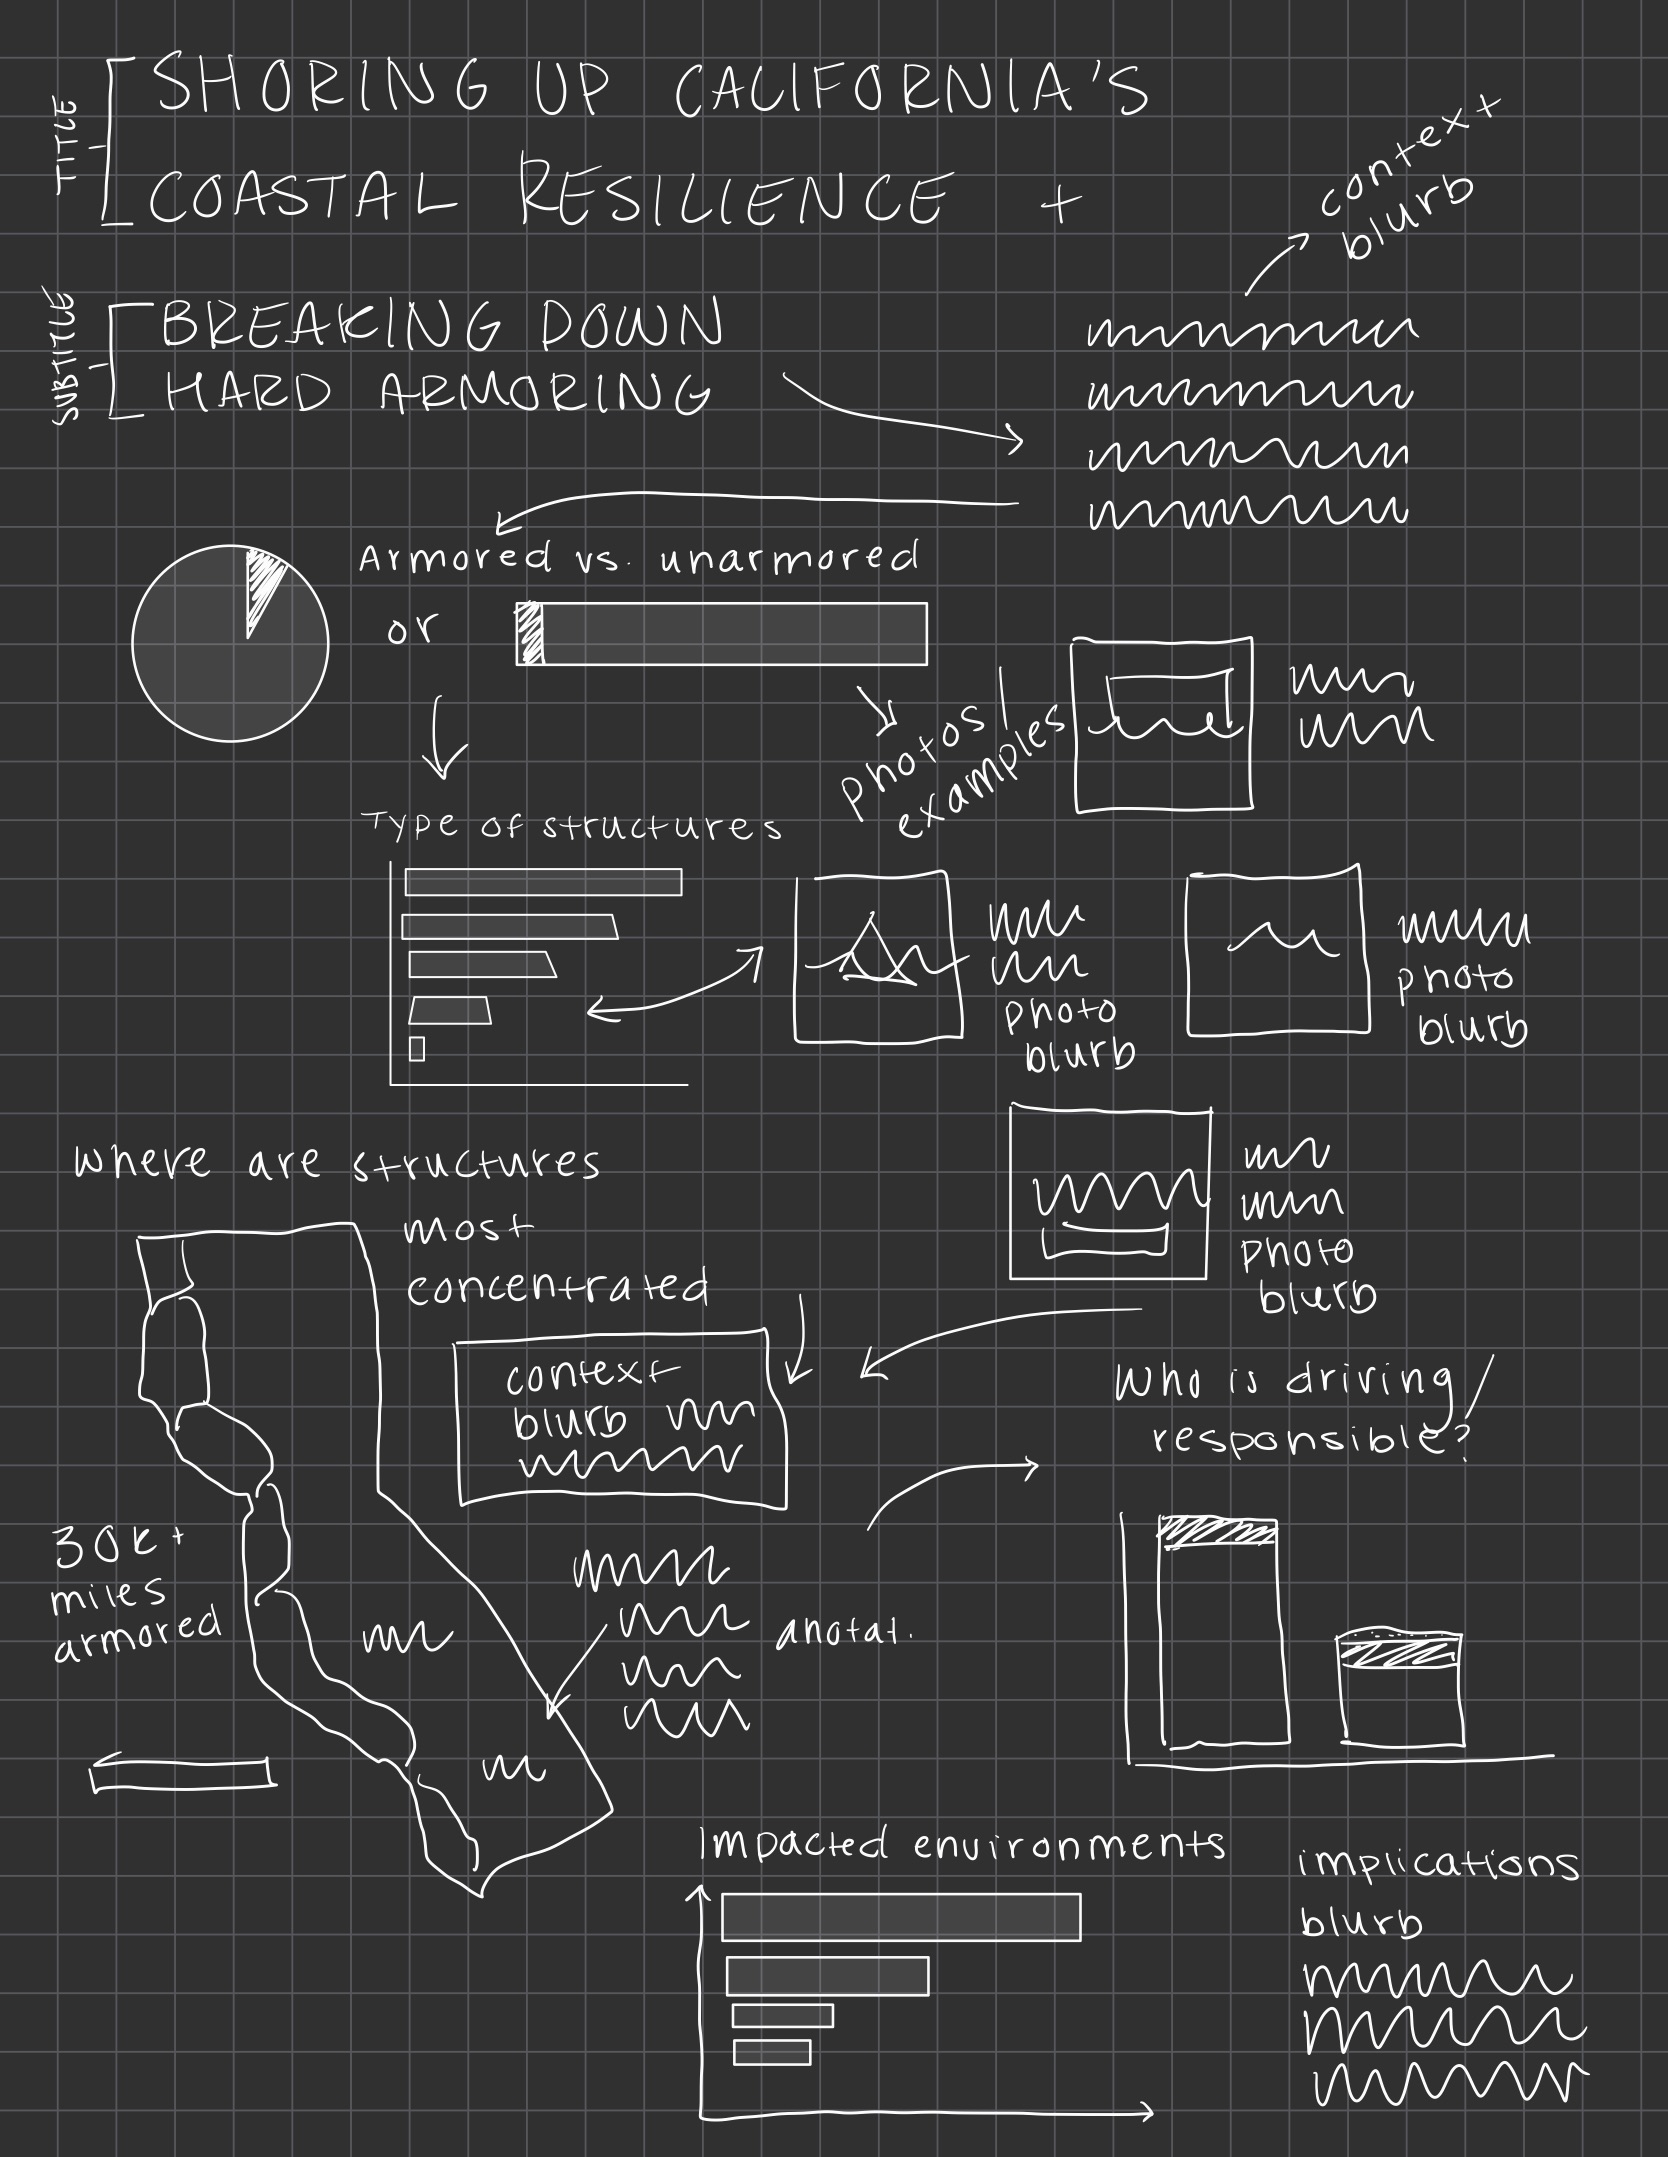 TITLE
SHORING UP CALIFORNIA'S
COASTAL RESILIENCE +
context
blurb
SUBTITLE
BREAKING DOWN
HARD ARMORING
Armored vs. unarmored
or
photos /
examples
Type of structures
photo
blurb
photo
blurb
where are structures
most
concentrated
photo
blurb
context
blurb
Who is driving /
responsible?
30k+
miles
armored
anotat.
Impacted environments
implications
blurb